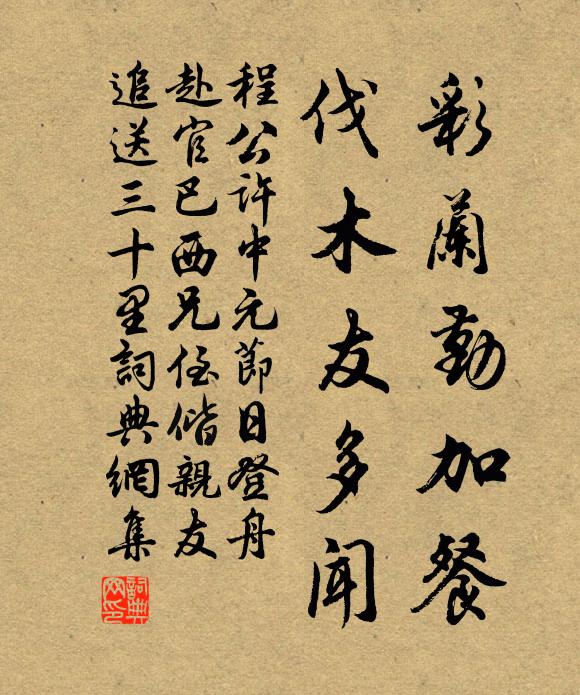 彩蘭勤加餐
伐木友多聞
程公許中元節日登舟
赴官巴西兄侄偕親友
追送三十里詞典網集
詞典
网印